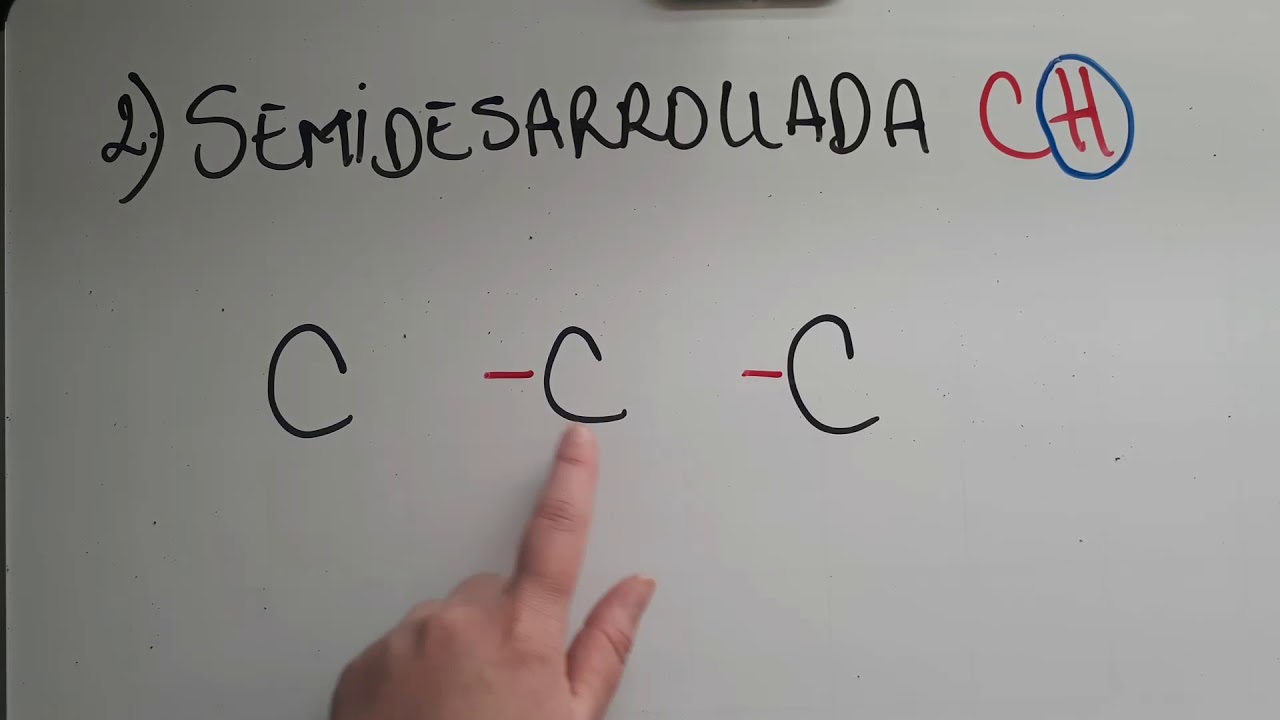 2) SEMIDESARROLLADA CH
C - C - C